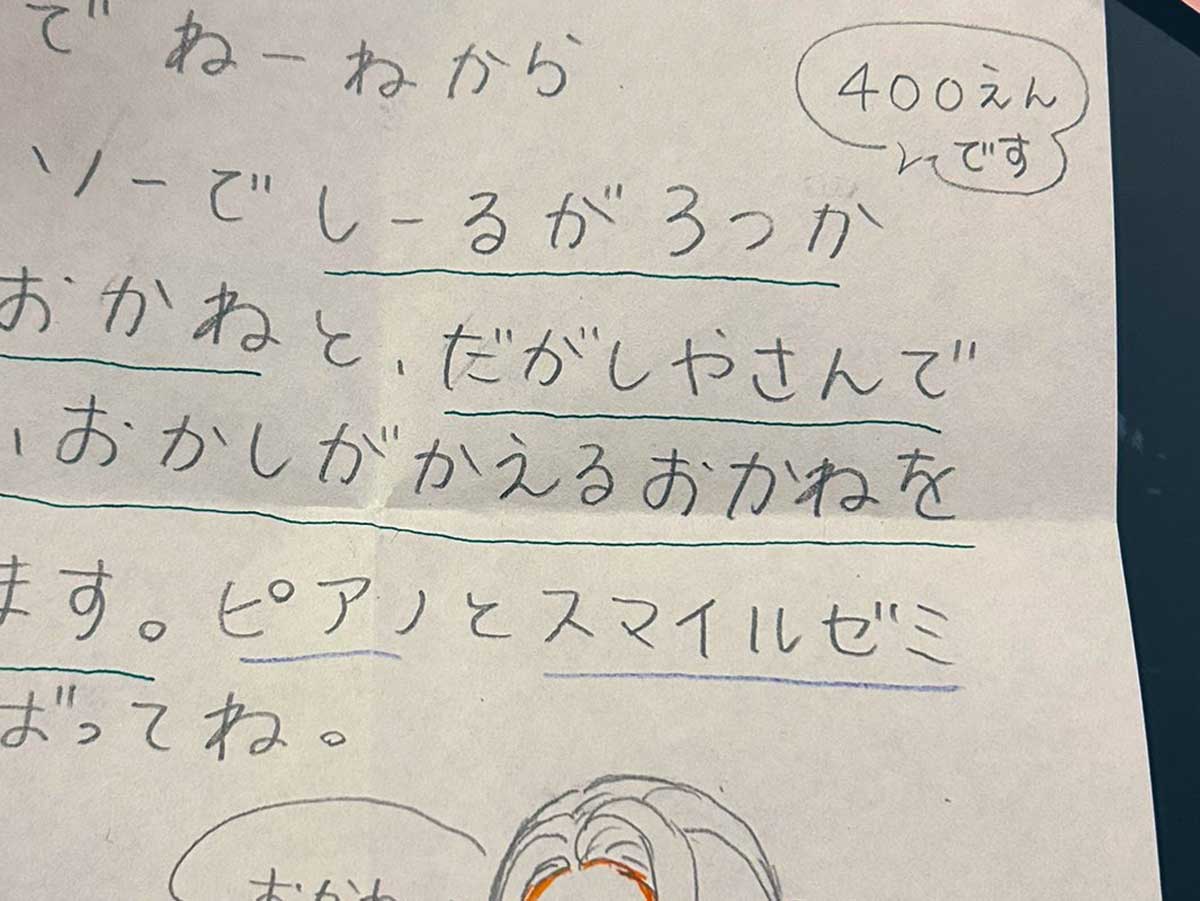 で ねーねから
400えん
です
ソーでしーるがろっか
おかねと、だがしやさんで
、おかしがかえるおかねを
ます。ピアノとスマイルゼミ
ばってね。
おかね